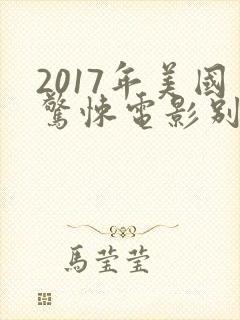 2017年美國
驚悚電影别
馬莹莹